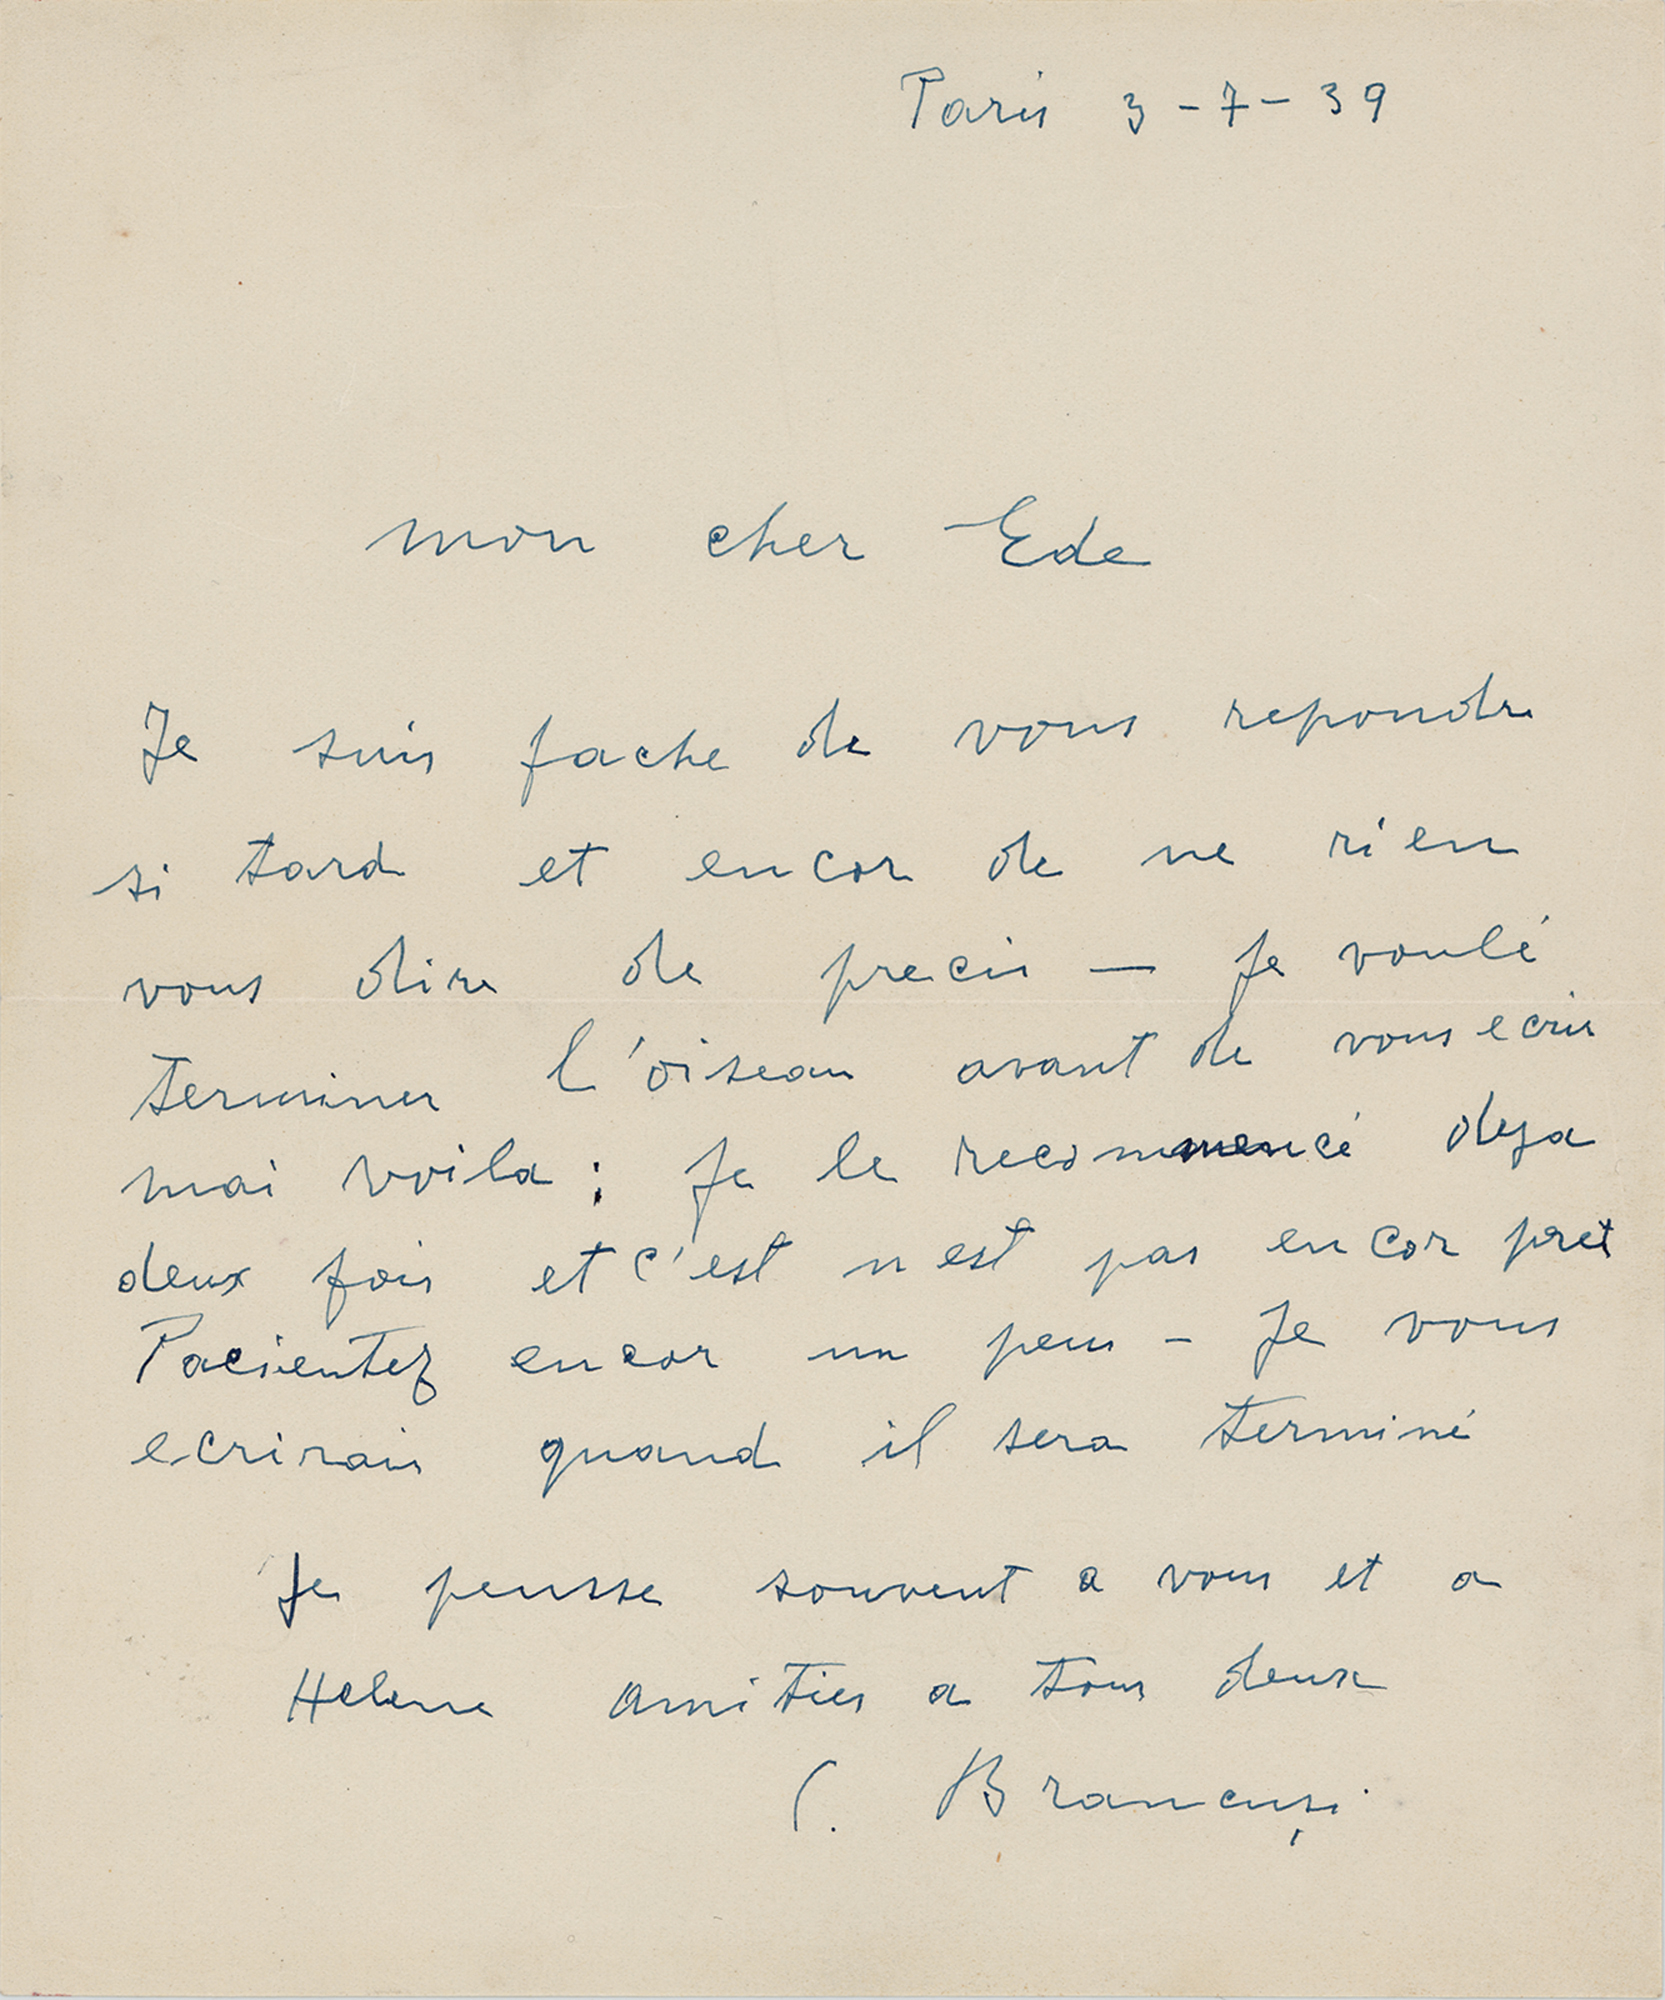 Paris 3 - 7 - 39
mon cher Ede
Je suis fache de vous repondre
si tard et encor de ne rien
vous dire de precis — Je voulé
terminer l'oiseau avant de vous ecrir
mai voila ; Je le recommencé deja
deux fois et c'est n est pas encor pret
Pacientez encor un peu - Je vous
ecrirais quand il sera terminé
Je pensse souvent a vous et a
Helene amities a tous deux
C. Brancuşi